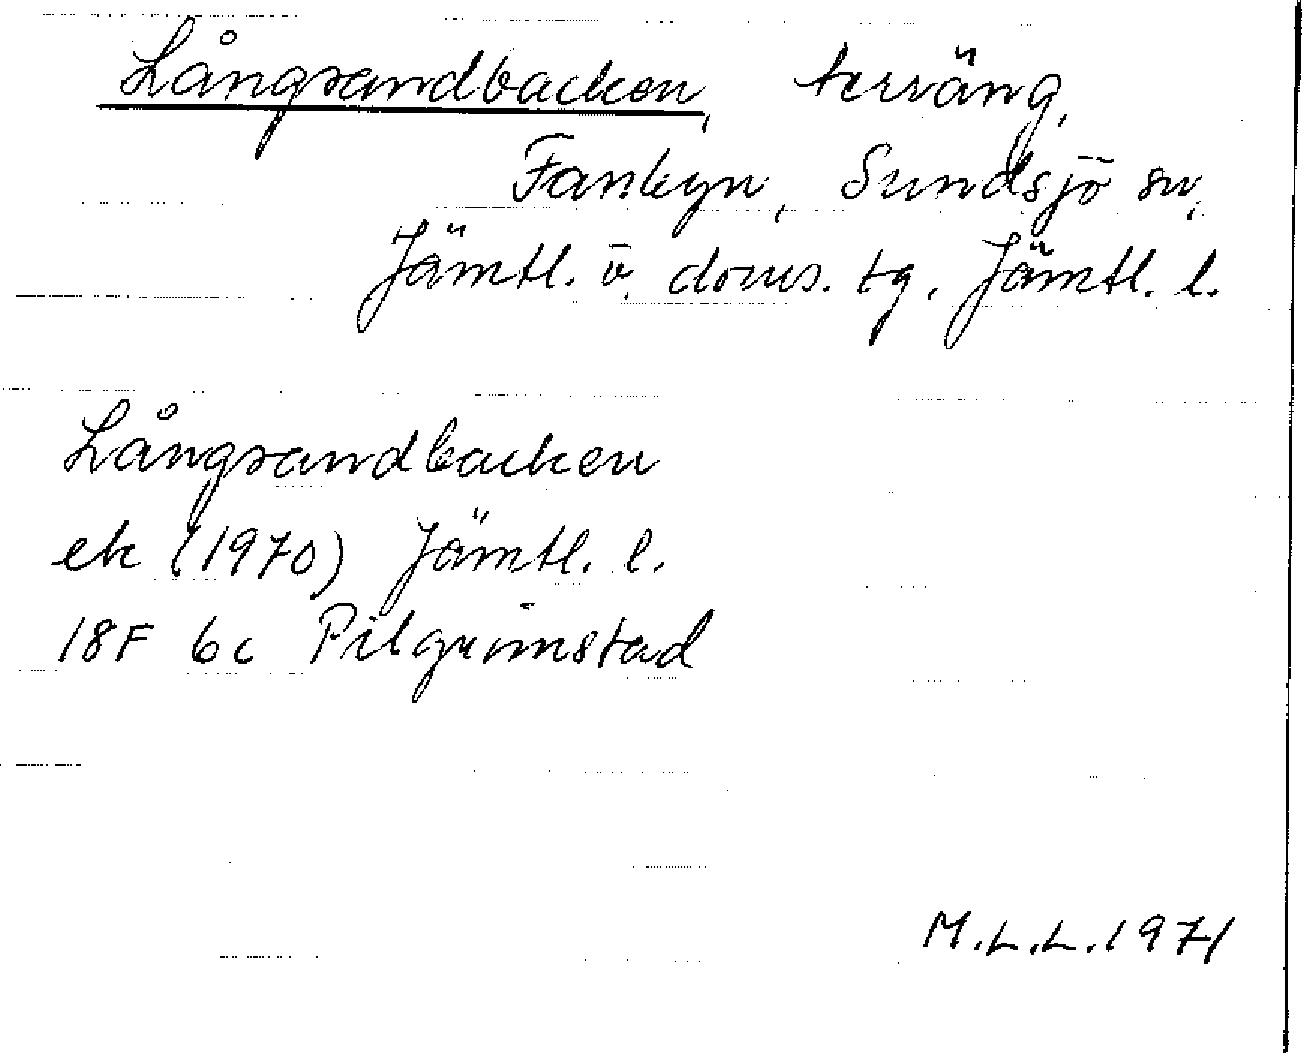 Långsandbacken, terräng,
Fanbyn, Sundsjö sn,
Jämtl. ö. doms. tg. Jämtl. l.
Långsandbacken
ek (1970) Jämtl. l.
18F 6c Pilgrimstad
M.L.L. 1971